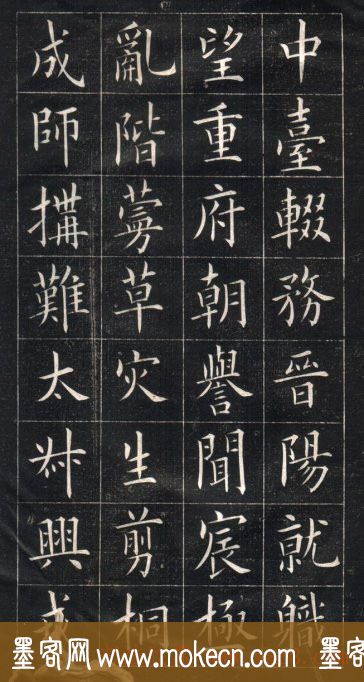 中臺輟務晉陽就職
望重府朝譽聞宸極
亂階蔓草灾生剪桐
成師搆難太叔興
墨客网 www.mokecn.com 墨客